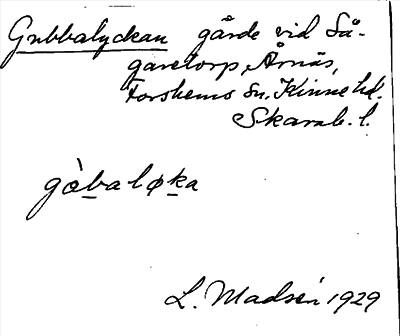 Gubbalyckan gärde vid Så-
garetorp, Årnäs,
Forshems sn. Kinne hd.
Skarab. l.
gòbaløka
L. Madsén 1929